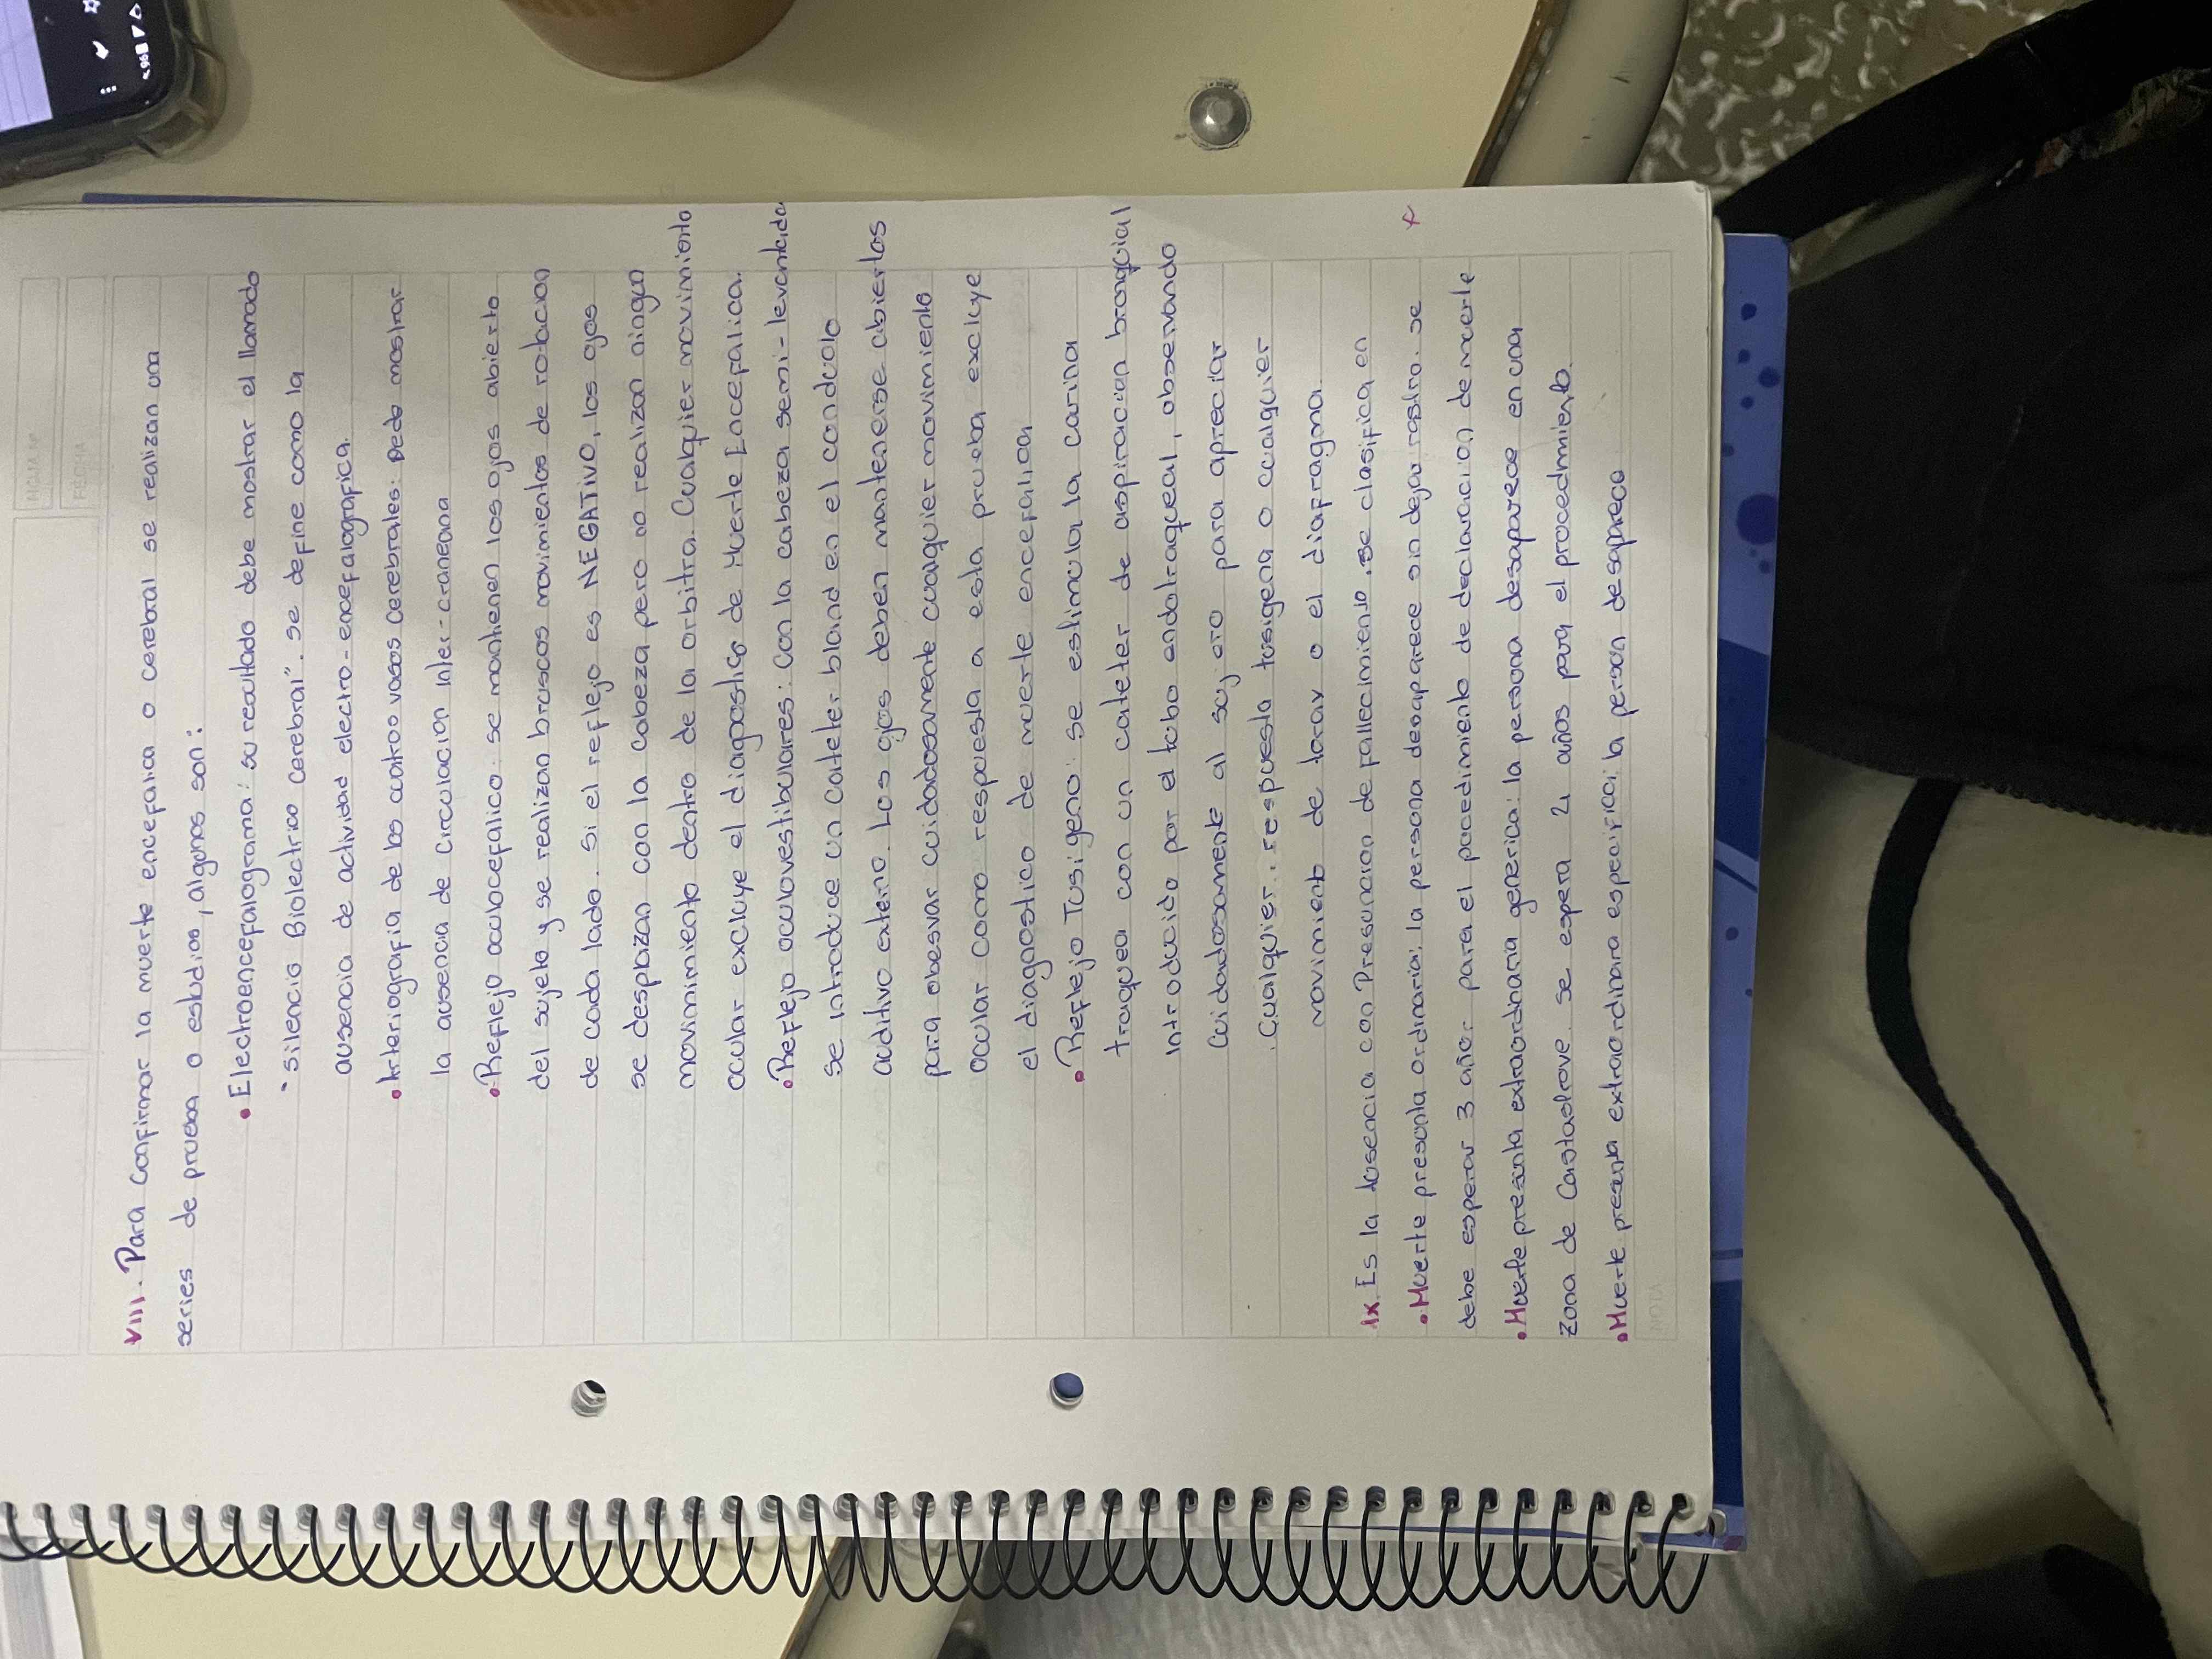 VIII. Para Confirmar la muerte encefalica o cerebral se realizan una
series de prueba o estudios, algunos son:
• Electroencefalograma: su resultado debe mostrar el llamado
"silencio Biolectrico Cerebral". se define como la
ausencia de actividad electro-encefalografica.
• Arteriografia de los cuatro vasos cerebrales: pede mostrar
la ausencia de circulacion inter-craneana
• Reflejo oculocefalico: se mantienen los ojos abierto
del sujeto y se realizan bruscos movimientos de rotacion
de cada lado. Si el reflejo es NEGATIVO, los ojos
se desplazan con la cabeza pero no realizan ningun
movinimiento dentro de la orbitra. Cualquier movimiento
ocular excluye el diagnostico de Muerte Encefalica.
• Reflejo oculovestibulares: Con la cabeza semi-levantada
se introduce un cateter bland en el conducto
auditivo externo. Los ojos deben mantenerse abiertos
para obesvar cuidadosamente cualquier movimiento
ocular como respuesta a esta prueba excluye
el diagnostico de muerte encefalica.
• Reflejo Tusigeno: se estimula la carina
traquea con un cateter de aspiracion bronquial
introducido por el tubo endotraqueal, observando
Cuidadosamente al sujero para apreciar
Cualquier respuesta tusigena o cualquier
movimiento de torax o el diafragma.
IX. Es la Ausencia con Presuncion de fallecimiento. se clasifica en
• Muerte presunta ordinaria: la persona desaparece sin dejar rastro. se
debe esperar 3 años para el pocedimiento de declaracion de muerte
• Muerte presinta extraordinaria generica: la persona desaparece en una
zona de Castastrove. se espera 2 años para el procedmiento.
• Muerte presenta extraordinara especifica: la person desaprece
NOTA
FECHA
96